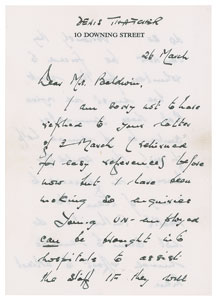 DENIS THATCHER
10 DOWNING STREET
26 March
Dear Mrs. Baldwin,
I am sorry not to have
replied to your letter
of 3 March (returned
for easy reference) before
now but I have been
making some enquiries
Young un-employed
can be brought into
hospitals to assist
the staff if they will